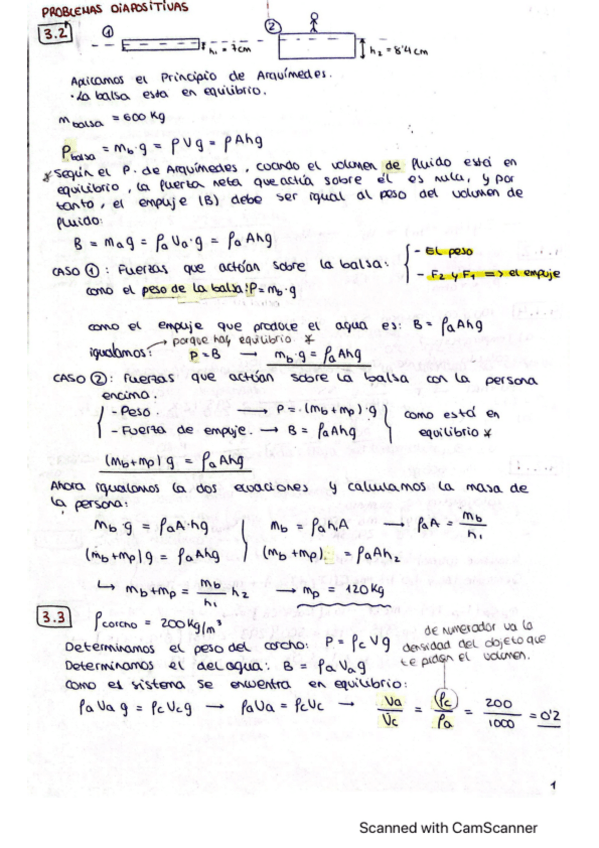 PROBLEMAS DIAPOSITIVAS
3.2 ① h₁ = 7cm ② h₂ = 8'4 cm
Aplicamos el Principio de Arquímedes.
· La balsa esta en equilibrio.
m balsa = 600 Kg
P balsa = mb·g = ρVg = ρAhg
* Según el P. de Arquímedes, cuando el volumen de fluido está en
equilibrio, la fuerza neta que actúa sobre él es nula, y por
tanto, el empuje (B) debe ser igual al peso del volumen de
fluido:
B = mag = ρaVa·g = ρaAhg
CASO ①: Fuerzas que actúan sobre la balsa: { - El peso
- F₂ y F₁ => el empuje
como el peso de la balsa: P = mb·g
como el empuje que produce el agua es: B = ρaAhg
porque hay equilibrio *
igualamos: P = B → mb·g = ρaAhg
CASO ②: Fuerzas que actúan sobre la balsa con la persona
encima.
- Peso. → P = (mb+mp)·g como está en
- Fuerza de empuje. → B = ρaAhg equilibrio *
(mb+mp)g = ρaAhg
Ahora igualamos la dos ecuaciones y calculamos la masa de
la persona:
mb·g = ρaA·hg mb = ρah₁A → ρaA = mb/h₁
(mb+mp)g = ρaAhg (mb+mp) = ρaAh₂
↳ mb+mp = mb/h₁ h₂ → mp = 120Kg
3.3 ρcorcho = 200Kg/m³
de numerador va la
densidad del objeto que
te piden el volumen.
Determinamos el peso del corcho: P = ρcVg
Determinamos el del agua: B = ρaVag
como es sistema se encuentra en equilibrio:
ρaVag = ρcVcg → ρaVa = ρcVc → Va/Vc = ρc/ρa = 200/1000 = 0'2
1
Scanned with CamScanner